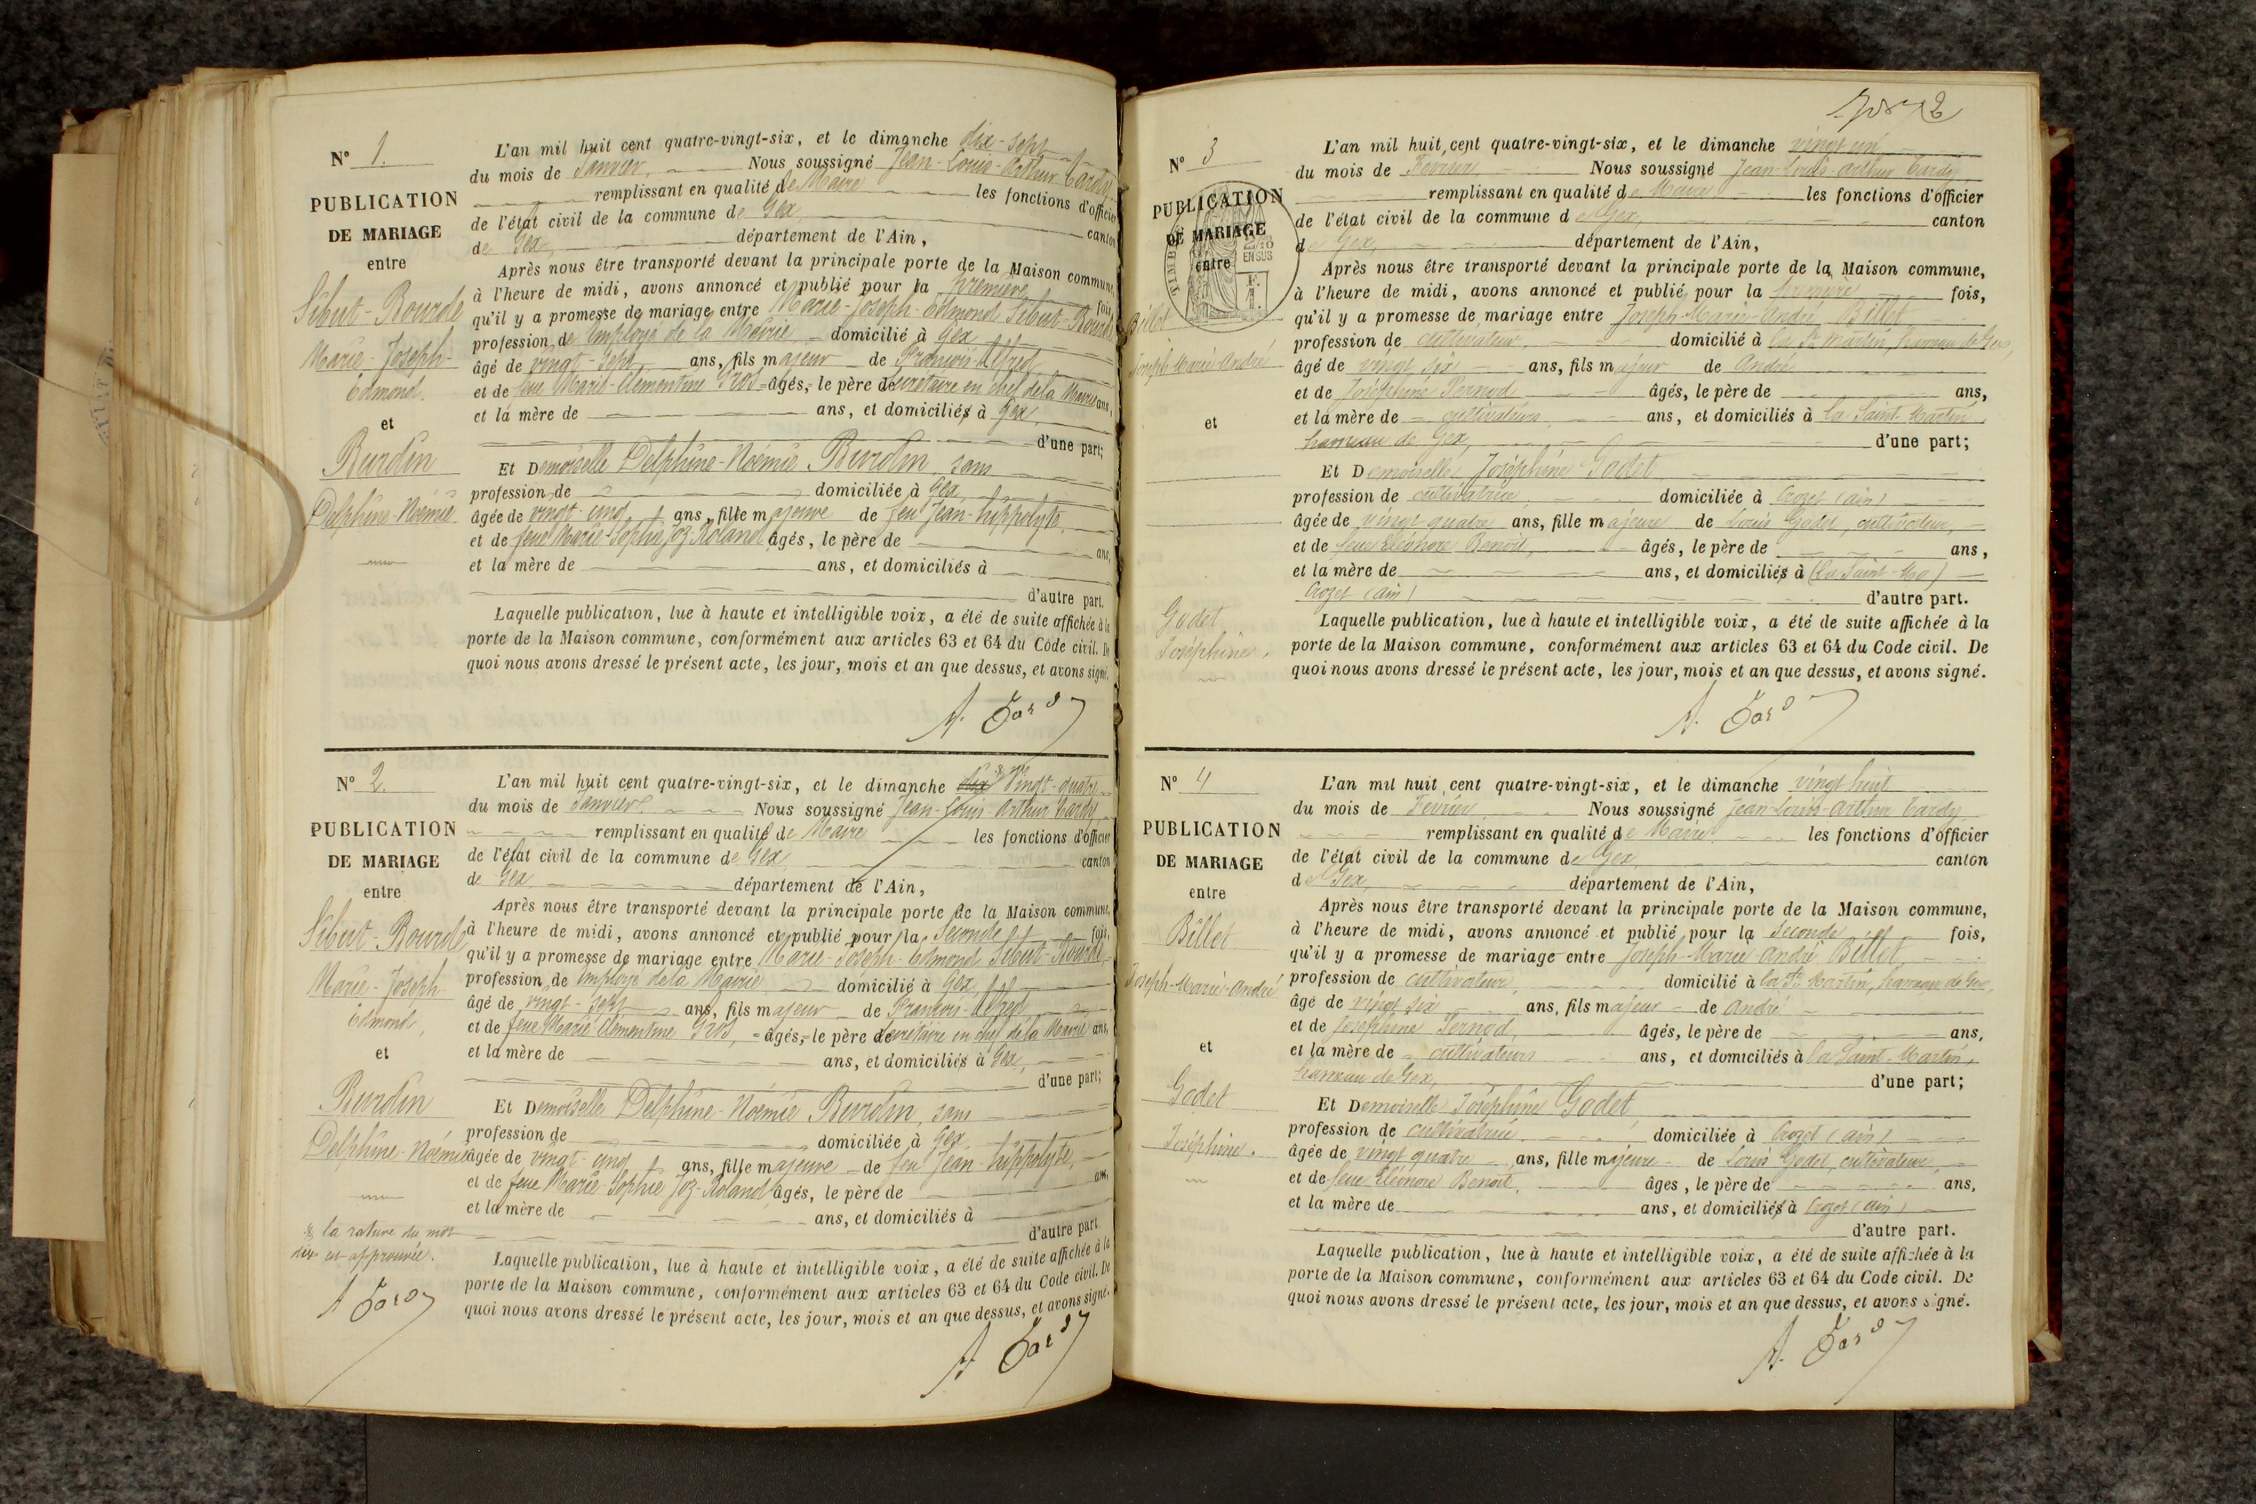 N° 1.
PUBLICATION
DE MARIAGE
entre
Sibut-Bourde
Marie-Joseph-
Edmond.
et
Burdin
Delphine-Noémie
L'an mil huit cent quatre-vingt-six, et le dimanche dix-sept
du mois de Janvier, Nous soussigné Jean-Louis-Arthur Tardy
remplissant en qualité de Maire les fonctions d'officier
de l'état civil de la commune de Gex, canton
de Gex, département de l'Ain,
Après nous être transporté devant la principale porte de la Maison commune,
à l'heure de midi, avons annoncé et publié pour la première fois,
qu'il y a promesse de mariage entre Marie-Joseph-Edmond Sibut-Bourde
profession de Employé de la Mairie domicilié à Gex
âgé de vingt-sept ans, fils majeur de François-Alfred
et de feue Marie-Clémentine Gros = âgés, le père secrétaire en chef de la Mairie ans,
et la mère de ans, et domiciliés à Gex,
d'une part;
Et Demoiselle Delphine-Noémie Burdin, sans
profession de domiciliée à Gex,
âgée de vingt-cinq ans, fille majeure de feu Jean-Hippolyte,
et de feue Marie-Sophie Joz-Roland âgés, le père de ans,
et la mère de ans, et domiciliés à
d'autre part.
Laquelle publication, lue à haute et intelligible voix, a été de suite affichée à la
porte de la Maison commune, conformément aux articles 63 et 64 du Code civil. De
quoi nous avons dressé le présent acte, les jour, mois et an que dessus, et avons signé.
A. Tardy
N° 2.
PUBLICATION
DE MARIAGE
entre
Sibut-Bourde
Marie-Joseph
Edmond,
et
Burdin
Delphine-Noémie
la rature du mot
dix est approuvée.
A Tardy
L'an mil huit cent quatre-vingt-six, et le dimanche dix Vingt-quatre
du mois de Janvier Nous soussigné Jean-Louis-Arthur Tardy,
remplissant en qualité de Maire les fonctions d'officier
de l'état civil de la commune de Gex canton
de Gex département de l'Ain,
Après nous être transporté devant la principale porte de la Maison commune,
à l'heure de midi, avons annoncé et publié pour la seconde fois,
qu'il y a promesse de mariage entre Marie-Joseph-Edmond Sibut-Bourde,
profession de Employé de la Mairie domicilié à Gex,
âgé de vingt-sept ans, fils majeur de François-Alfred
et de feue Marie Clémentine Gros, = âgés, le père secrétaire en chef de la Mairie ans,
et la mère de ans, et domiciliés à Gex,
d'une part;
Et Demoiselle Delphine-Noémie Burdin, sans
profession de domiciliée à Gex,
âgée de vingt-cinq ans, fille majeure de feu Jean-Hippolyte,
et de feue Marie-Sophie Joz-Roland âgés, le père de ans,
et la mère de ans, et domiciliés à
d'autre part.
Laquelle publication, lue à haute et intelligible voix, a été de suite affichée à la
porte de la Maison commune, conformément aux articles 63 et 64 du Code civil. De
quoi nous avons dressé le présent acte, les jour, mois et an que dessus, et avons signé.
A. Tardy
2
N° 3
PUBLICATION
DE MARIAGE
entre
Billet
Joseph-Marie-André
et
Godet
Joséphine.
L'an mil huit cent quatre-vingt-six, et le dimanche vingt un
du mois de Février Nous soussigné Jean-Louis-Arthur Tardy,
remplissant en qualité de Maire les fonctions d'officier
de l'état civil de la commune de Gex, canton
de Gex, département de l'Ain,
Après nous être transporté devant la principale porte de la Maison commune,
à l'heure de midi, avons annoncé et publié pour la première fois,
qu'il y a promesse de mariage entre Joseph-Marie-André Billet
profession de cultivateur domicilié à la St Martin, hameau de Gex,
âgé de vingt six ans, fils majeur de André
et de Joséphine Pernod âgés, le père de ans,
et la mère de cultivateurs ans, et domiciliés à la Saint-Martin
hameau de Gex, d'une part;
Et Demoiselle Joséphine Godet
profession de cultivatrice domiciliée à Crozet (ain)
âgée de vingt quatre ans, fille majeure de Louis Godet, cultivateur,
et de feue Eléonore Benoit, âgés, le père de ans,
et la mère de ans, et domiciliés à (la Saint-Ma)
Crozet (ain) d'autre part.
Laquelle publication, lue à haute et intelligible voix, a été de suite affichée à la
porte de la Maison commune, conformément aux articles 63 et 64 du Code civil. De
quoi nous avons dressé le présent acte, les jour, mois et an que dessus, et avons signé.
A. Tardy
N° 4
PUBLICATION
DE MARIAGE
entre
Billet
Joseph-Marie-André
et
Godet
Joséphine.
L'an mil huit cent quatre-vingt-six, et le dimanche vingt huit
du mois de Février Nous soussigné Jean-Louis-Arthur Tardy
remplissant en qualité de Maire les fonctions d'officier
de l'état civil de la commune de Gex canton
de Gex, département de l'Ain,
Après nous être transporté devant la principale porte de la Maison commune,
à l'heure de midi, avons annoncé et publié pour la seconde fois,
qu'il y a promesse de mariage entre Joseph-Marie André Billet,
profession de cultivateur domicilié à la St Martin, hameau de Gex,
âgé de vingt six ans, fils majeur de André
et de Joséphine Pernod, âgés, le père de ans,
et la mère de cultivateurs ans, et domiciliés à la Saint-Martin,
hameau de Gex, d'une part;
Et Demoiselle Joséphine Godet
profession de cultivatrice domiciliée à Crozet (ain)
âgée de vingt quatre ans, fille majeure de Louis Godet, cultivateur,
et de feue Eléonore Benoit, âges, le père de ans,
et la mère de ans, et domiciliés à Crozet (ain)
d'autre part.
Laquelle publication, lue à haute et intelligible voix, a été de suite affichée à la
porte de la Maison commune, conformément aux articles 63 et 64 du Code civil. De
quoi nous avons dressé le présent acte, les jour, mois et an que dessus, et avons signé.
A. Tardy